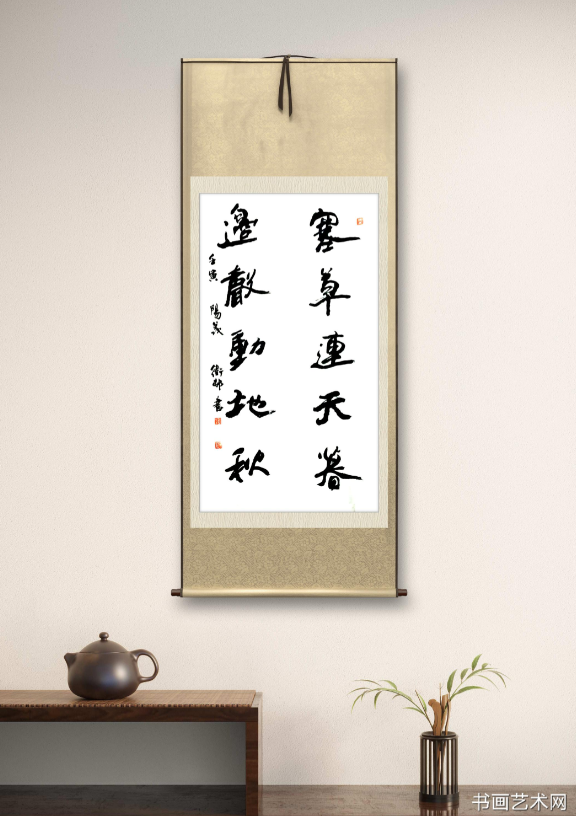 塞草連天暮
邊聲動地秋
壬寅 陽羨 書
书画艺术网